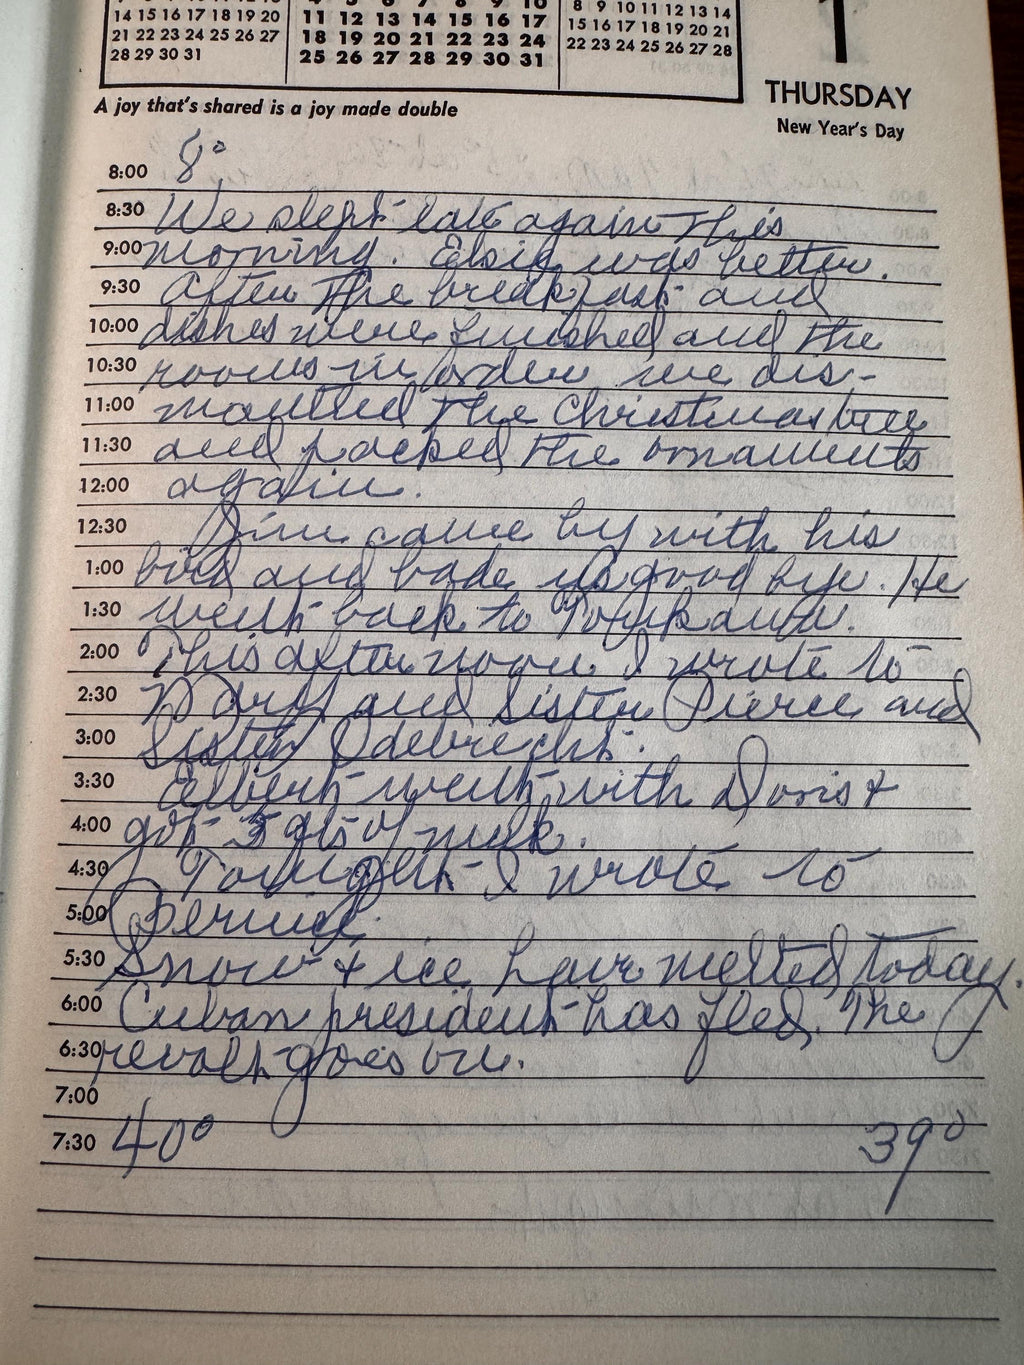 14 15 16 17 18 19 20
21 22 23 24 25 26 27
28 29 30 31
4 5 6 7 8 9 10
11 12 13 14 15 16 17
18 19 20 21 22 23 24
25 26 27 28 29 30 31
8 9 10 11 12 13 14
15 16 17 18 19 20 21
22 23 24 25 26 27 28
1
THURSDAY
New Year's Day
A joy that's shared is a joy made double
8:00 8°
8:30 We slept late again this
9:00 morning. Elsie was better.
9:30 After the breakfast and
10:00 dishes were finished and the
10:30 rooms in order we dis-
11:00 mantled the Christmas tree
11:30 and packed the ornaments
12:00 again.
12:30 Jim came by with his
1:00 bird and bade us good bye. He
1:30 went back to Tonkawa.
2:00 This afternoon I wrote to
2:30 and Sister Pierce and
3:00 Sister Odebrecht.
3:30 Elbert went with Doris &
4:00 got 3 qts of milk.
4:30 Tonight I wrote to
5:00 Bernice.
5:30 Snow & ice have melted today.
6:00 Cuban president has fled. The
6:30 revolt goes on.
7:00
7:30 40° 39°